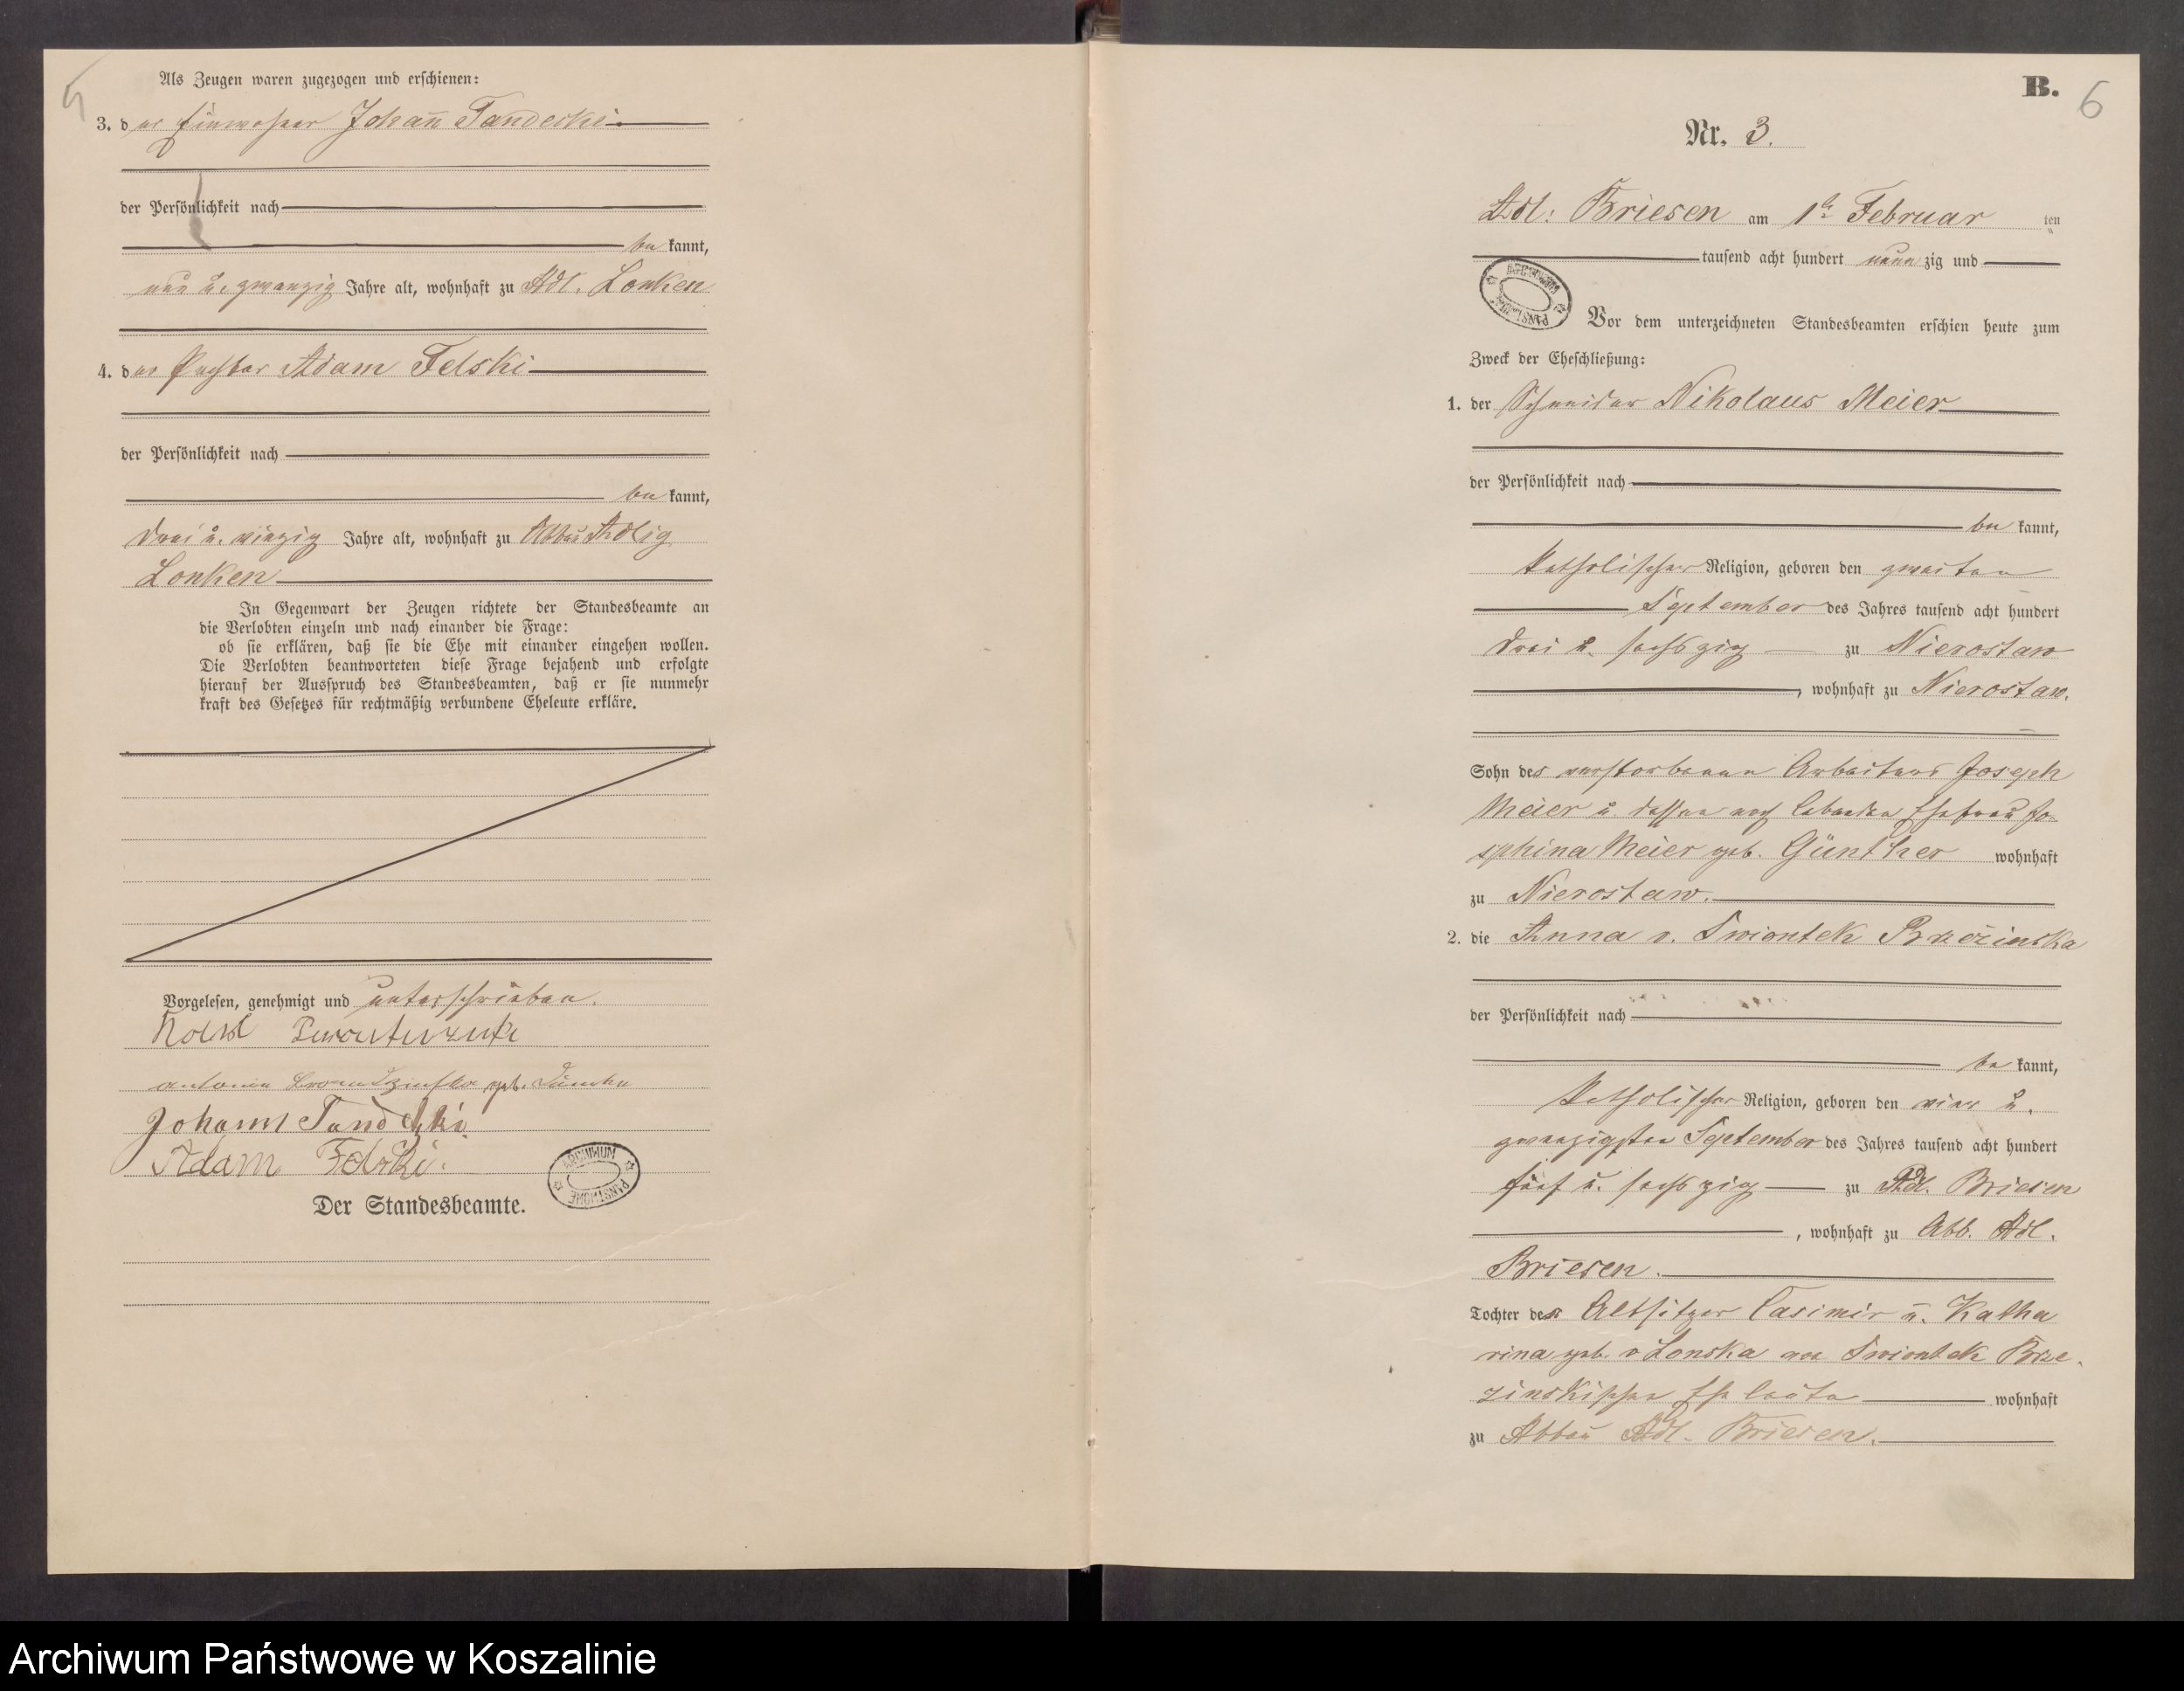 Als Zeugen waren zugezogen und erschienen:
3. der Einwohner Johann Tandecki
der Persönlichkeit nach
be kannt,
ein u. zwanzig Jahre alt, wohnhaft zu Adl. Lonken
4. der Pächter Adam Felski
der Persönlichkeit nach
be kannt,
drei u. vierzig Jahre alt, wohnhaft zu Abbau Adlig
Lonken
In Gegenwart der Zeugen richtete der Standesbeamte an
die Verlobten einzeln und nach einander die Frage:
ob sie erklären, daß sie die Ehe mit einander eingehen wollen.
Die Verlobten beantworteten diese Frage bejahend und erfolgte
hierauf der Ausspruch des Standesbeamten, daß er sie nunmehr
kraft des Gesetzes für rechtmäßig verbundene Eheleute erkläre.
Vorgelesen, genehmigt und unterschrieben.
geb.
Johann Tandecki
Adam Felski.
ARCHIWUM PAŃSTWOWE
Der Standesbeamte.
B.
6
Nr. 3.
Adl: Briesen am 1ten Februar ten
tausend acht hundert neun zig und
ARCHIWUM PAŃSTWOWE
Vor dem unterzeichneten Standesbeamten erschien heute zum
Zweck der Eheschließung:
1. der Schneider Nikolaus Meier
der Persönlichkeit nach
be kannt,
katholischer Religion, geboren den zweiten
September des Jahres tausend acht hundert
drei u. sechszig zu Nierostaw
, wohnhaft zu Nierostaw.
Sohn des verstorbenen Arbeiters Joseph
Meier u. dessen noch lebenden Ehefrau Jo-
sphina Meier geb. Günther wohnhaft
zu Nierostaw.
2. die Anna v. Swiontek Brzezinska
der Persönlichkeit nach
be kannt,
katholischer Religion, geboren den vier u.
zwanzigsten September des Jahres tausend acht hundert
fünf u. sechszig zu Adl. Briesen
, wohnhaft zu Abb. Adl.
Briesen.
Tochter der Altsitzer Casimir u. Katha
rina geb. v Lonska von Swiontek Brze-
zinskischen Eheleute wohnhaft
zu Abbau Adl. Briesen.
Archiwum Państwowe w Koszalinie